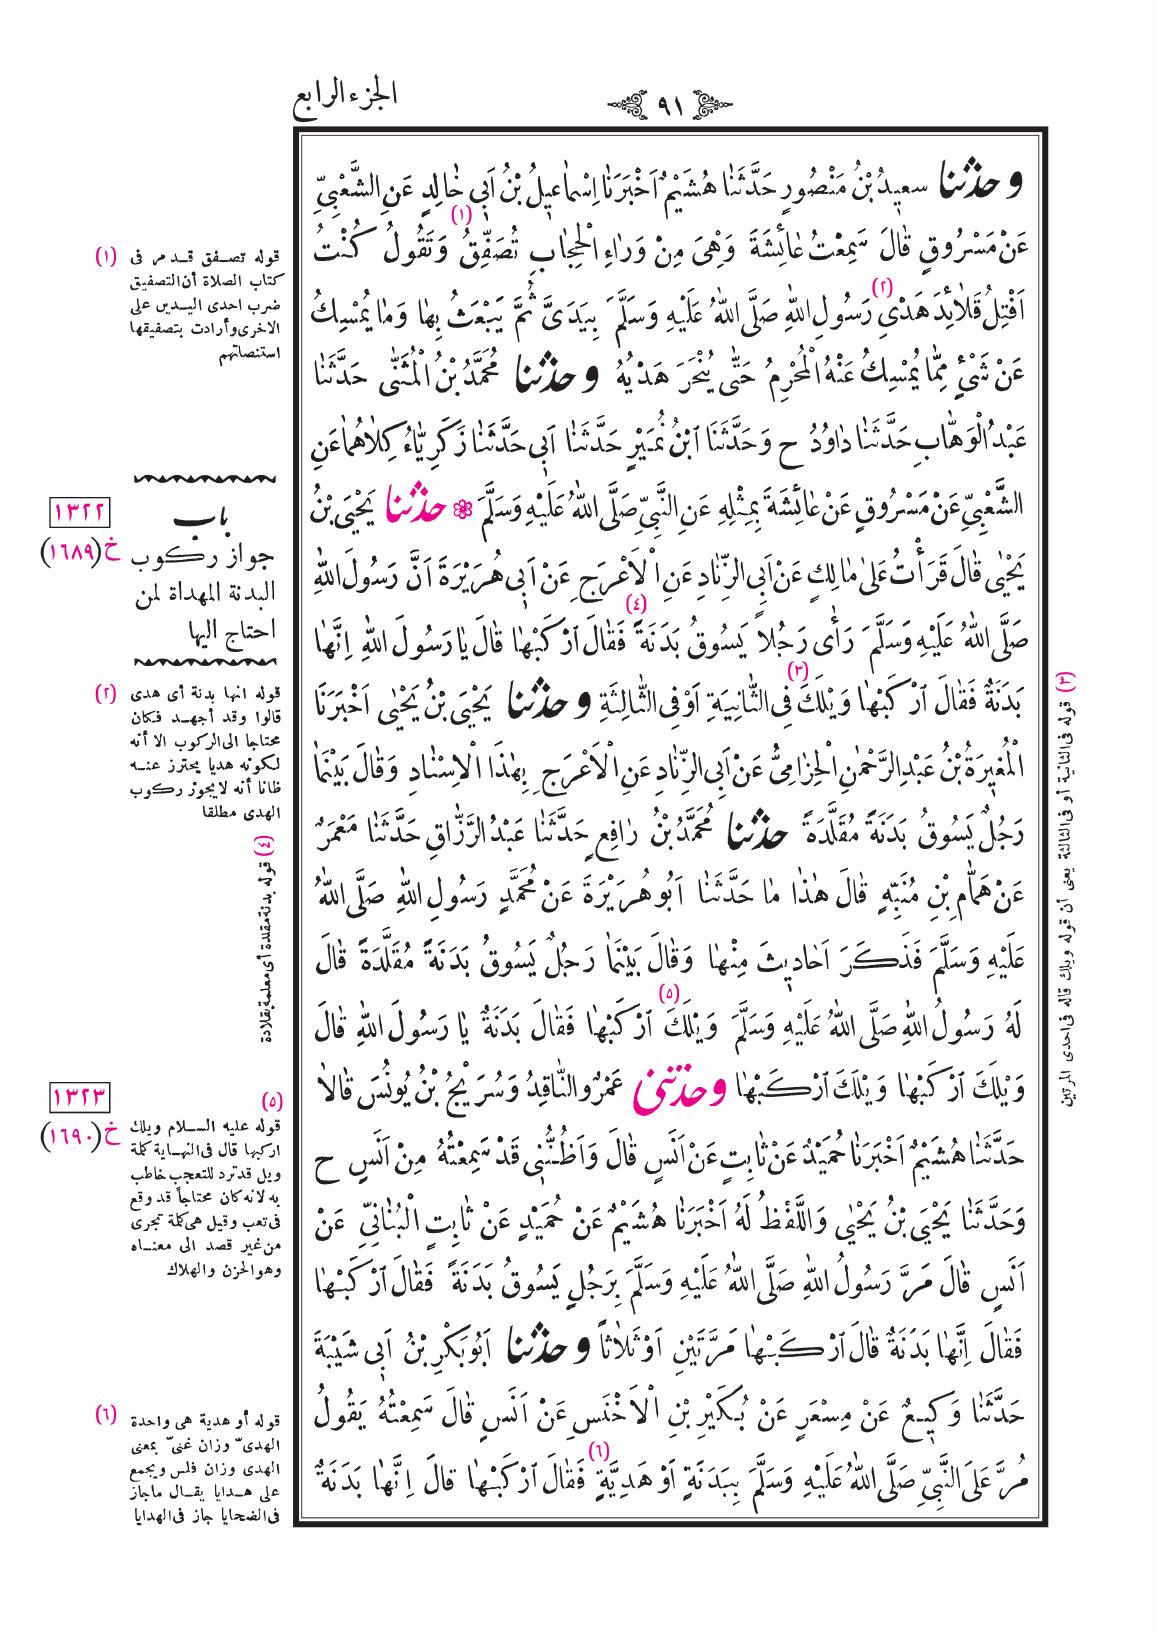 الجزء الرابع
٩١
وحدثنا سَعِيدُ بْنُ مَنْصُورٍ حَدَّثَنَا هُشَيْمٌ اَخْبَرَنَا اِسْمَاعِيلُ بْنُ اَبِى خَالِدٍ عَنِ الشَّعْبِىِّ
عَنْ مَسْرُوقٍ قَالَ سَمِعْتُ عَائِشَةَ وَهِىَ مِنْ وَرَاءِ الْحِجَابِ تُصَفِّقُ (١) وَتَقُولُ كُنْتُ
اَفْتِلُ قَلَائِدَ هَدْىِ رَسُولِ اللّٰهِ صَلَّى اللّٰهُ عَلَيْهِ وَسَلَّمَ بِيَدَىَّ ثُمَّ يَبْعَثُ بِهَا وَمَا يُمْسِكُ
عَنْ شَىْءٍ مِمَّا يُمْسِكُ عَنْهُ الْمُحْرِمُ حَتّٰى يُنْحَرَ هَدْيُهُ وحدثنا مُحَمَّدُ بْنُ الْمُثَنّٰى حَدَّثَنَا
عَبْدُ الْوَهَّابِ حَدَّثَنَا دَاوُدُ ح وَحَدَّثَنَا ابْنُ نُمَيْرٍ حَدَّثَنَا اَبِى حَدَّثَنَا زَكَرِيَّاءُ كِلَاهُمَا عَنِ
الشَّعْبِىِّ عَنْ مَسْرُوقٍ عَنْ عَائِشَةَ بِمِثْلِهِ عَنِ النَّبِىِّ صَلَّى اللّٰهُ عَلَيْهِ وَسَلَّمَ ۞ حدثنا يَحْيَى بْنُ
يَحْيٰى قَالَ قَرَأْتُ عَلٰى مَالِكٍ عَنْ اَبِى الزِّنَادِ عَنِ الْاَعْرَجِ عَنْ اَبِى هُرَيْرَةَ اَنَّ رَسُولَ اللّٰهِ
صَلَّى اللّٰهُ عَلَيْهِ وَسَلَّمَ رَأٰى رَجُلاً يَسُوقُ بَدَنَةً (٤) فَقَالَ ارْكَبْهَا قَالَ يَا رَسُولَ اللّٰهِ اِنَّهَا
بَدَنَةٌ فَقَالَ ارْكَبْهَا وَيْلَكَ فِى الثَّانِيَةِ (٣) اَوْ فِى الثَّالِثَةِ وحدثنا يَحْيَى بْنُ يَحْيٰى اَخْبَرَنَا
الْمُغِيرَةُ بْنُ عَبْدِ الرَّحْمٰنِ الْحِزَامِىُّ عَنْ اَبِى الزِّنَادِ عَنِ الْاَعْرَجِ بِهٰذَا الْاِسْنَادِ وَقَالَ بَيْنَمَا
رَجُلٌ يَسُوقُ بَدَنَةً مُقَلَّدَةً حدثنا مُحَمَّدُ بْنُ رَافِعٍ حَدَّثَنَا عَبْدُ الرَّزَّاقِ حَدَّثَنَا مَعْمَرٌ
عَنْ هَمَّامِ بْنِ مُنَبِّهٍ قَالَ هٰذَا مَا حَدَّثَنَا اَبُو هُرَيْرَةَ عَنْ مُحَمَّدٍ رَسُولِ اللّٰهِ صَلَّى اللّٰهُ
عَلَيْهِ وَسَلَّمَ فَذَكَرَ اَحَادِيثَ مِنْهَا وَقَالَ بَيْنَمَا رَجُلٌ يَسُوقُ بَدَنَةً مُقَلَّدَةً قَالَ
لَهُ رَسُولُ اللّٰهِ صَلَّى اللّٰهُ عَلَيْهِ وَسَلَّمَ وَيْلَكَ (٥) ارْكَبْهَا فَقَالَ بَدَنَةٌ يَا رَسُولَ اللّٰهِ قَالَ
وَيْلَكَ ارْكَبْهَا وَيْلَكَ ارْكَبْهَا وحدثنى عَمْرٌو النَّاقِدُ وَسُرَيْجُ بْنُ يُونُسَ قَالَا
حَدَّثَنَا هُشَيْمٌ اَخْبَرَنَا حُمَيْدٌ عَنْ ثَابِتٍ عَنْ اَنَسٍ قَالَ وَاَظُنُّنِى قَدْ سَمِعْتُهُ مِنْ اَنَسٍ ح
وَحَدَّثَنَا يَحْيَى بْنُ يَحْيٰى وَاللَّفْظُ لَهُ اَخْبَرَنَا هُشَيْمٌ عَنْ حُمَيْدٍ عَنْ ثَابِتٍ الْبُنَانِىِّ عَنْ
اَنَسٍ قَالَ مَرَّ رَسُولُ اللّٰهِ صَلَّى اللّٰهُ عَلَيْهِ وَسَلَّمَ بِرَجُلٍ يَسُوقُ بَدَنَةً فَقَالَ ارْكَبْهَا
فَقَالَ اِنَّهَا بَدَنَةٌ قَالَ ارْكَبْهَا مَرَّتَيْنِ اَوْ ثَلَاثاً وحدثنا اَبُو بَكْرِ بْنُ اَبِى شَيْبَةَ
حَدَّثَنَا وَكِيعٌ عَنْ مِسْعَرٍ عَنْ بُكَيْرِ بْنِ الْاَخْنَسِ عَنْ اَنَسٍ قَالَ سَمِعْتُهُ يَقُولُ
مُرَّ عَلَى النَّبِىِّ صَلَّى اللّٰهُ عَلَيْهِ وَسَلَّمَ بِبَدَنَةٍ اَوْ هَدِيَّةٍ (٦) فَقَالَ ارْكَبْهَا قَالَ اِنَّهَا بَدَنَةٌ
(٢)
(١) قوله تصفق قد مر فى
كتاب الصلاة أن التصفيق
ضرب احدى اليدين على
الاخرى وأرادت بتصفيقها
استنصاتهم
١٣٢٢
خ (١٦٨٩)
باب
جواز ركوب
البدنة المهداة لمن
احتاج اليها
(٢) قوله انها بدنة أى هدى
قالوا وقد أجهد فكان
محتاجا الى الركوب الا أنه
لكونه هديا يحترز عنه
ظانا أنه لا يجوز ركوب
الهدى مطلقا
(٣) قوله فى الثانية أو فى الثالثة يعنى أن قوله ويلك قاله فى احدى المرتين
(٤) قوله بدنة مقلدة أى معلمة بقلادة
١٣٢٣
خ (١٦٩٠)
(٥)
قوله عليه السلام ويلك
اركبها قال فى النهاية كلة
ويل قد ترد للتعجب خاطب
به لانه كان محتاجاً قد وقع
فى تعب وقيل هى كلة تجرى
من غير قصد الى معناه
وهو الحزن والهلاك
(٦) قوله أو هدية هى واحدة
الهدىّ وزان غنىّ بمعنى
الهدى وزان فلس ويجمع
على هدايا يقال ما جاز
فى الضحايا جاز فى الهدايا